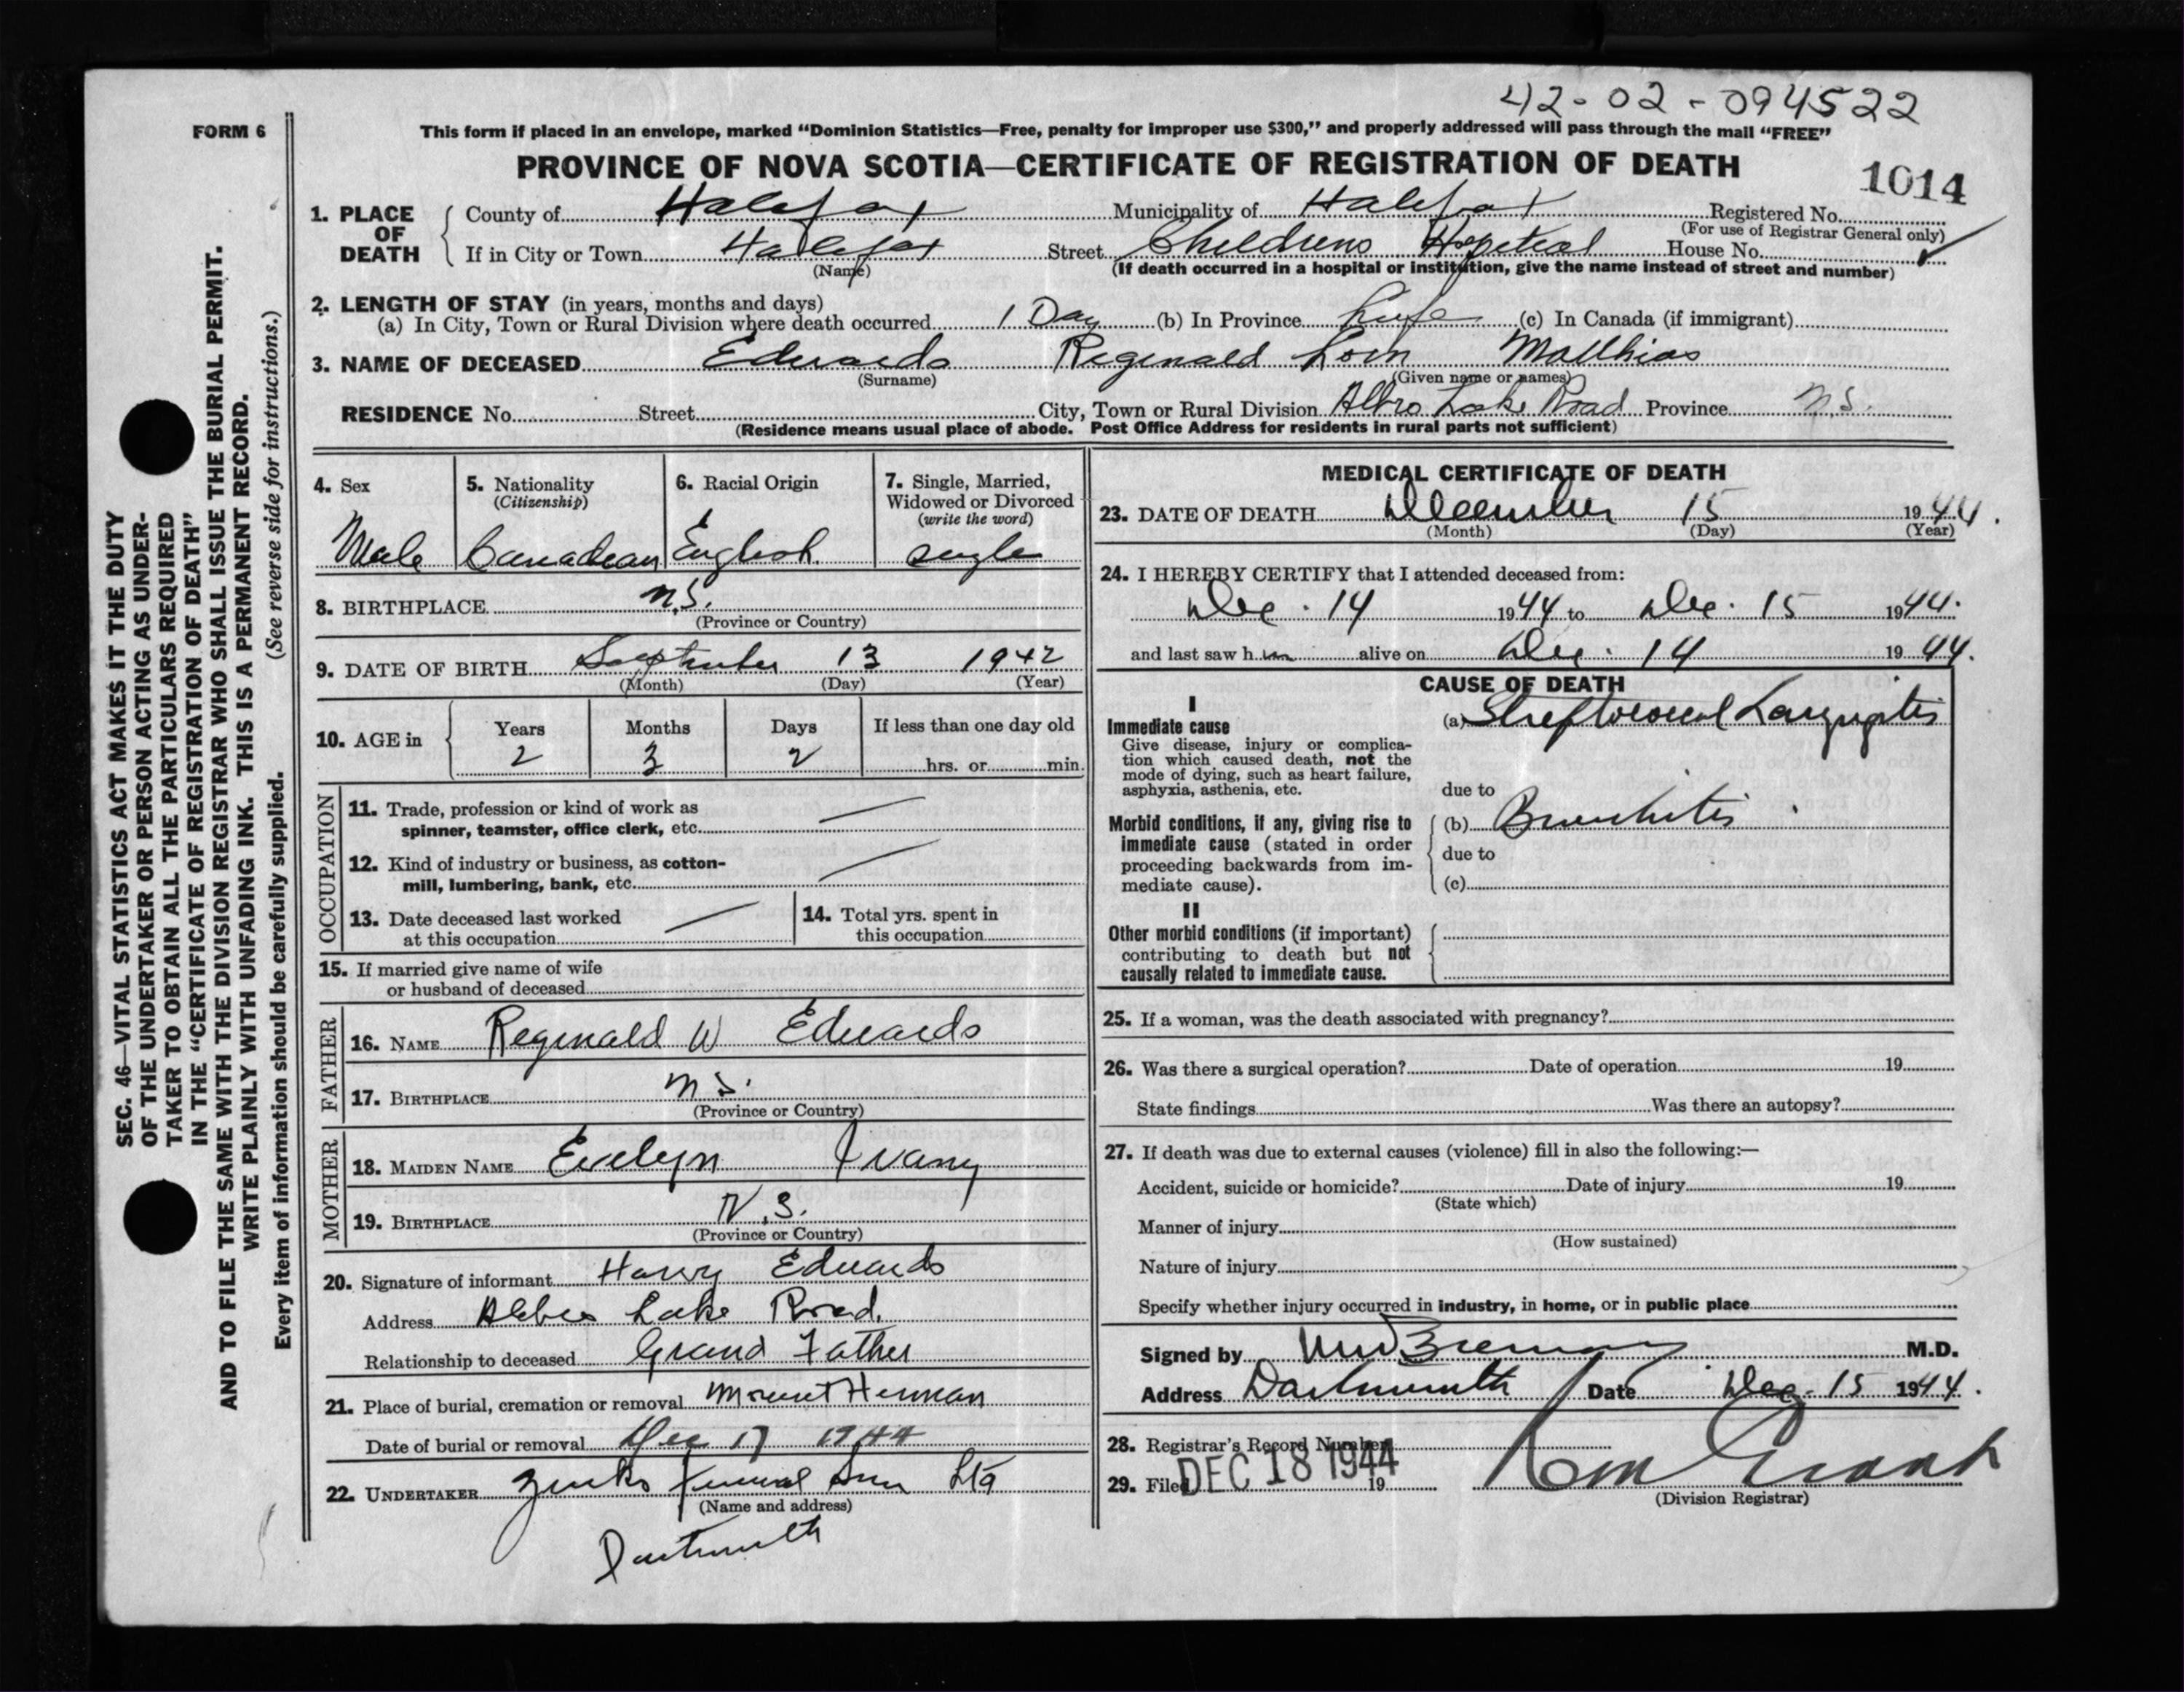 42-02-094522
FORM 6
This form if placed in an envelope, marked “Dominion Statistics—Free, penalty for improper use $300,” and properly addressed will pass through the mail “FREE”
PROVINCE OF NOVA SCOTIA—CERTIFICATE OF REGISTRATION OF DEATH
1014
1. PLACE OF DEATH County of Halifax Municipality of Halifax Registered No.
(For use of Registrar General only)
If in City or Town Halifax Street Childrens Hospital House No.
(Name) (If death occurred in a hospital or institution, give the name instead of street and number)
2. LENGTH OF STAY (in years, months and days)
(a) In City, Town or Rural Division where death occurred 1 Day (b) In Province Life (c) In Canada (if immigrant)
3. NAME OF DECEASED Edwards Reginald Lorn Matthias
(Surname) (Given name or names)
RESIDENCE No. Street City, Town or Rural Division Albro Lake Road Province N.S.
(Residence means usual place of abode. Post Office Address for residents in rural parts not sufficient)
4. Sex 5. Nationality 6. Racial Origin 7. Single, Married,
(Citizenship) Widowed or Divorced
(write the word)
Male Canadian English single
8. BIRTHPLACE N.S.
(Province or Country)
9. DATE OF BIRTH September 13 1942
(Month) (Day) (Year)
10. AGE in Years Months Days If less than one day old
2 3 2 hrs. or min.
OCCUPATION
11. Trade, profession or kind of work as
spinner, teamster, office clerk, etc. —
12. Kind of industry or business, as cotton-
mill, lumbering, bank, etc. —
13. Date deceased last worked
at this occupation —
14. Total yrs. spent in
this occupation
15. If married give name of wife
or husband of deceased
FATHER
16. NAME Reginald W Edwards
17. BIRTHPLACE N S.
(Province or Country)
MOTHER
18. MAIDEN NAME Evelyn Ivany
19. BIRTHPLACE N.S.
(Province or Country)
20. Signature of informant Harry Edwards
Address Albro Lake Road.
Relationship to deceased Grand Father
21. Place of burial, cremation or removal Mount Herman
Date of burial or removal Dec 17 1944
22. UNDERTAKER Zinks Funeral Ltd
(Name and address)
Dartmouth
MEDICAL CERTIFICATE OF DEATH
23. DATE OF DEATH December 15 1944.
(Month) (Day) (Year)
24. I HEREBY CERTIFY that I attended deceased from:
Dec. 14 1944 to Dec. 15 1944.
and last saw h im alive on Dec. 14 1944.
CAUSE OF DEATH
I
Immediate cause
Give disease, injury or complica-
tion which caused death, not the
mode of dying, such as heart failure,
asphyxia, asthenia, etc.
(a) Streptococcal Laryngitis
due to
Morbid conditions, if any, giving rise to
immediate cause (stated in order
proceeding backwards from im-
mediate cause).
(b) Bronchitis.
due to
(c)
II
Other morbid conditions (if important)
contributing to death but not
causally related to immediate cause.
25. If a woman, was the death associated with pregnancy?
26. Was there a surgical operation? Date of operation 19
State findings Was there an autopsy?
27. If death was due to external causes (violence) fill in also the following:—
Accident, suicide or homicide? Date of injury 19
(State which)
Manner of injury
(How sustained)
Nature of injury
Specify whether injury occurred in industry, in home, or in public place
Signed by M.D.
Address Dartmouth Date Dec. 15 1944.
28. Registrar's Record Number
29. Filed DEC 18 1944 19
(Division Registrar)
SEC. 46—VITAL STATISTICS ACT MAKES IT THE DUTY
OF THE UNDERTAKER OR PERSON ACTING AS UNDER-
TAKER TO OBTAIN ALL THE PARTICULARS REQUIRED
IN THE “CERTIFICATE OF REGISTRATION OF DEATH”
AND TO FILE THE SAME WITH THE DIVISION REGISTRAR WHO SHALL ISSUE THE BURIAL PERMIT.
WRITE PLAINLY WITH UNFADING INK. THIS IS A PERMANENT RECORD.
Every item of information should be carefully supplied. (See reverse side for instructions.)